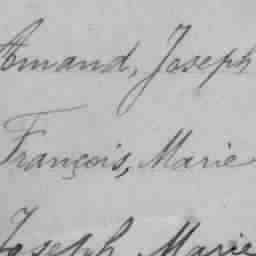 Amand, Joseph
François, Marie
Joseph Marie